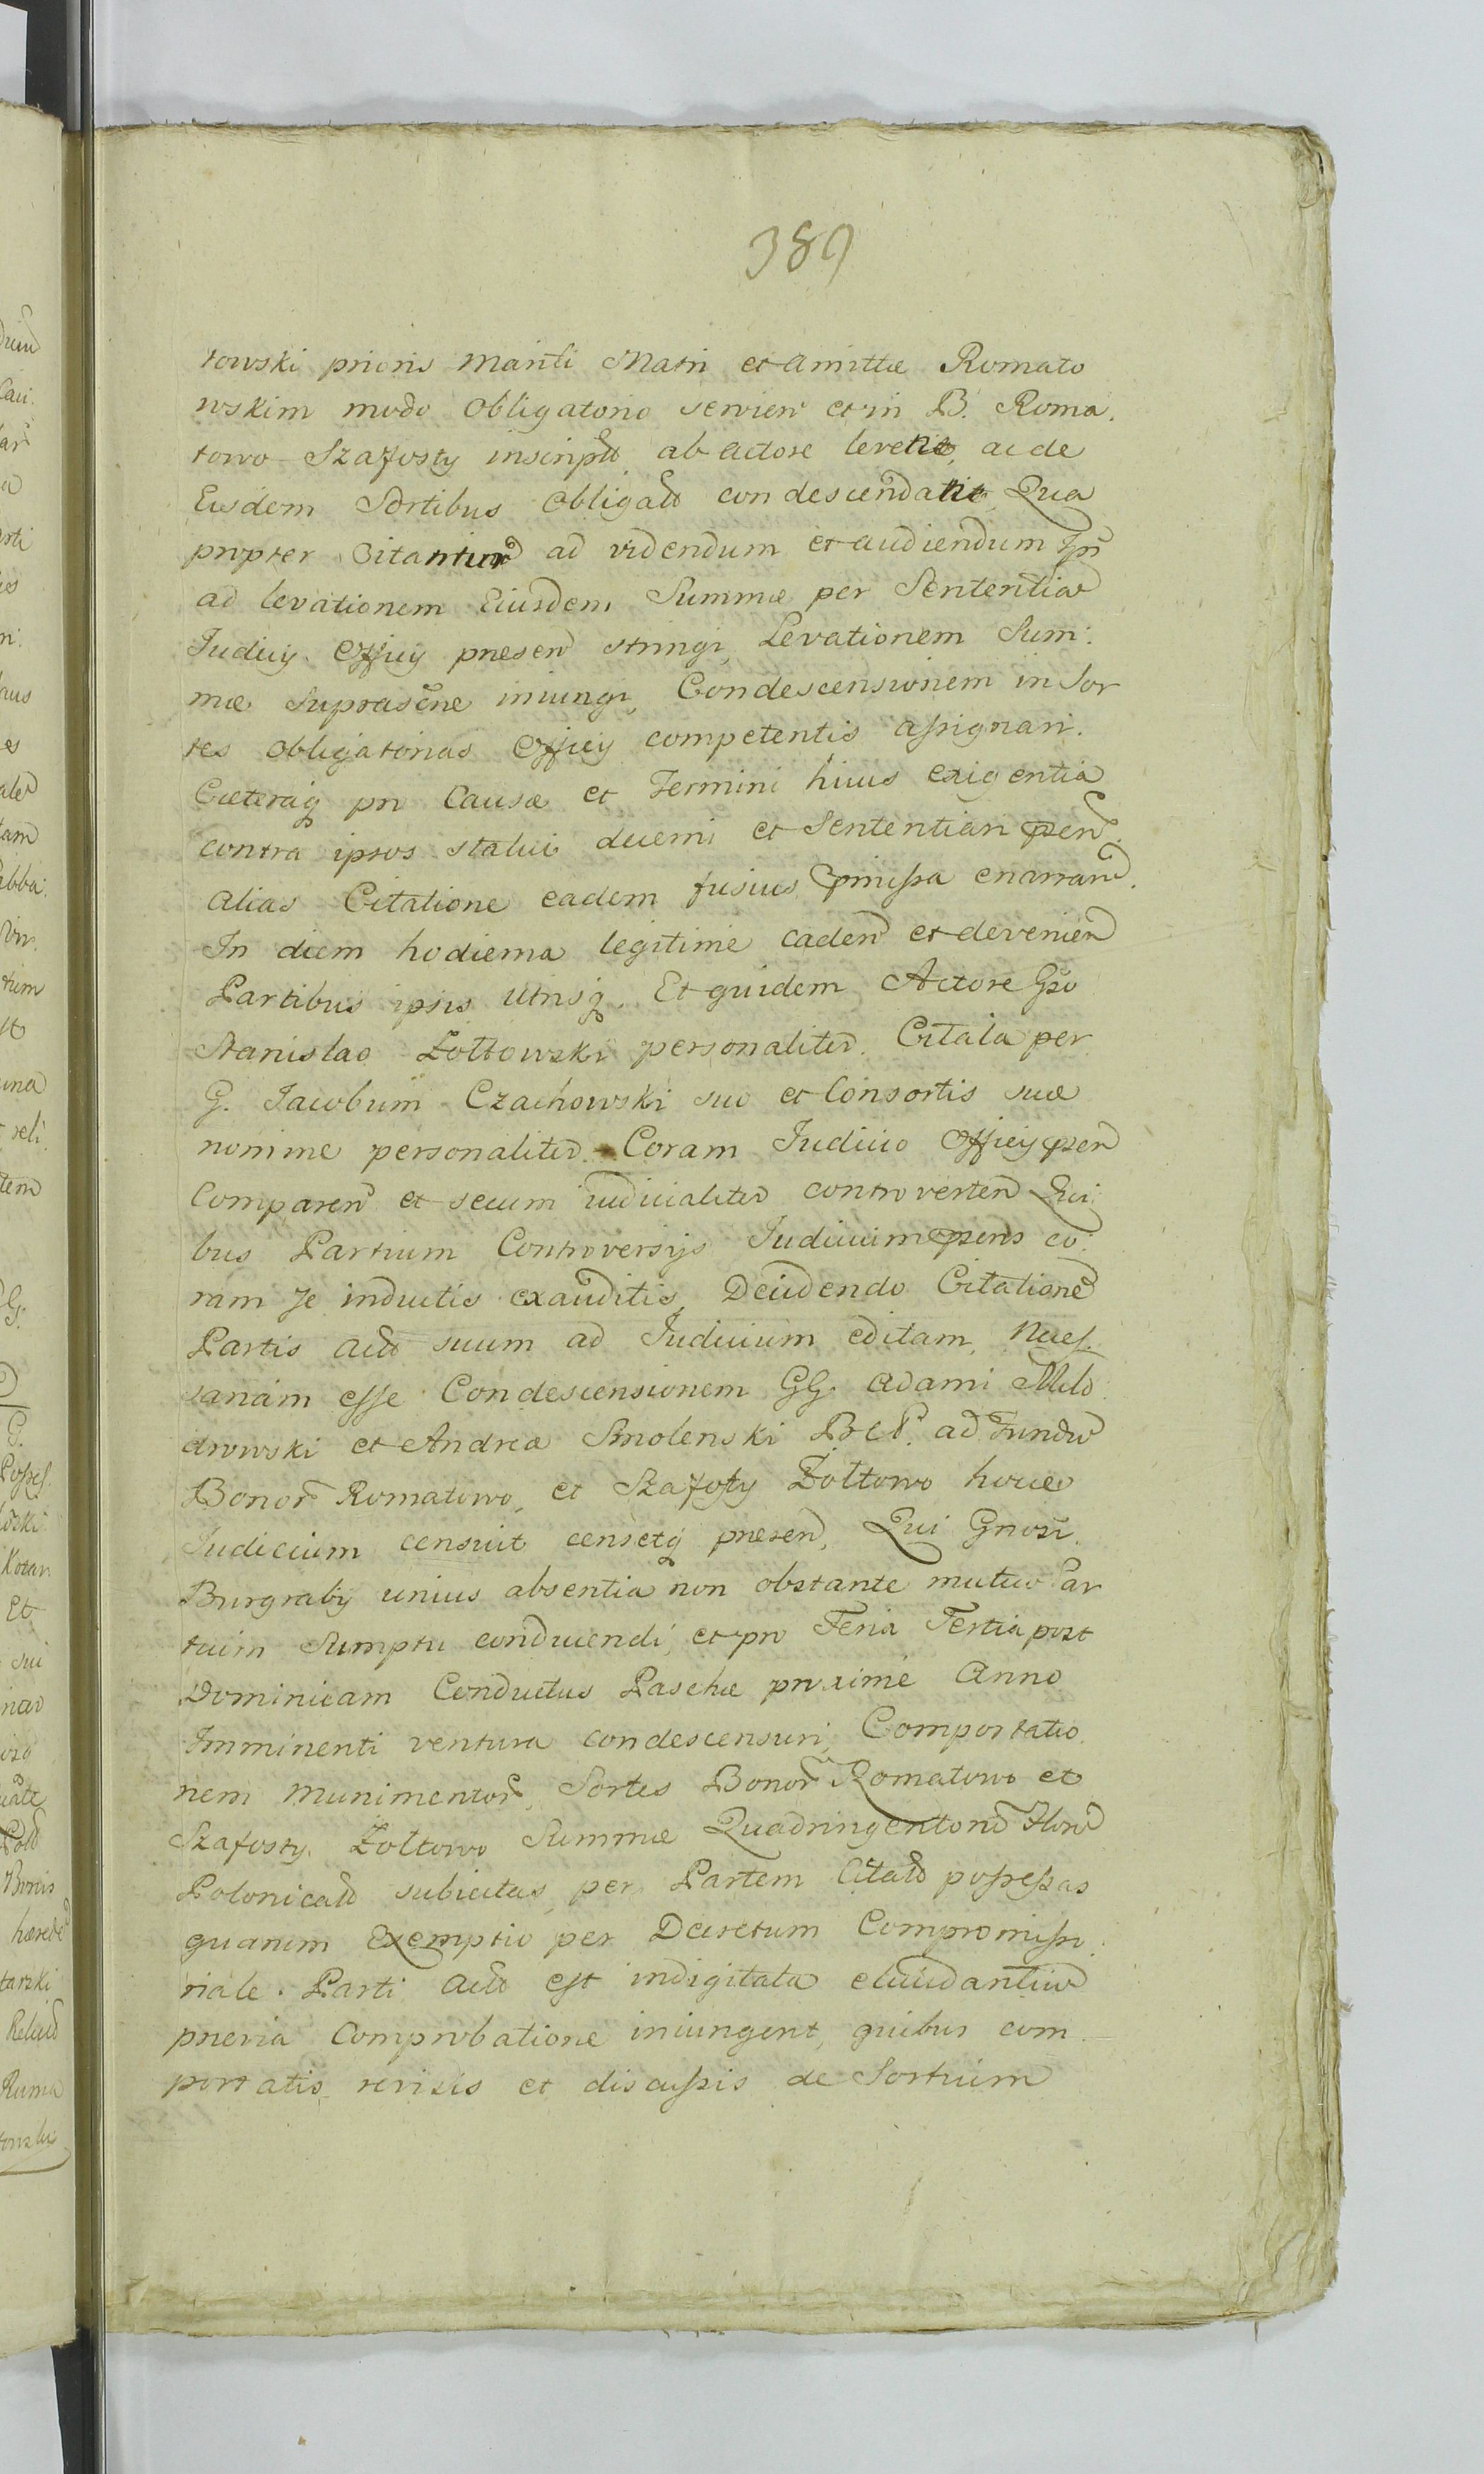 389
towski prioris Mariti Matri et Amittæ Romato
wskim modo obligatorio servien et in B. Roma.
towo Szafosty inscript ab actore levetis, ac de
Eisdem Sortibus obligat condescendatis, Qua
propter Citantur ad videndum et audiendum Ipsi
ad levationem Eiusdem Summæ per Sententia
Judicij Officij presen stringi, Levationem Sum:
mæ suprascne iniungi, Condescensionem in Sor
tes obligatorias Officij competentis assignari.
Cæteraq pro Causæ et Termini huius exigentia
contra ipsos statui decerni et Sententiari psen
alias Citatione eadem fusius pmissa enarran.
In diem hodierna legitime caden et devenien
Partibus ipsis utrisq. Et quidem Actore Gso
Stanislao Zołtowski personaliter. Citata per
G. Jacobum Czachowski suo et Consortis suæ
nomine personaliter. Coram Judicio Officij psen
Comparen et secum iudicialiter controverten Qui
bus Partium Controversijs Judicium psens co:
ram se inductis exauditis, Decidendo Citatione
Partis act suum ad Judicium editam, Neces.
sariam esse Condescensionem GG. Adami Mło
drowski et Andrea Smolenski B C P. ad Fundu
Bonor Romatowo, et Szafosty Zołtowo hocce
Judicium censuit censetq presen, Qui Gnosi.
Burgrabij unius absentia non obstante mutuo Par
tium Sumptu conducendi, et pro Feria Tertia post
Dominicam Conductus Paschæ proxime Anno
Imminenti ventura condescensuri, Comportatio
nem Munimentor, Sortes Bonor Romatowo et
Szafosty Zołtowo Summæ Quadringentor Flor
Polonical subiectas per Partem Citat possessas
quarum Exemptio per Decretum Compromissi
riale Parti act est indigitata elucidantiu
prævia Comprobatione iniungent, quibus com
portatis revisis et discussis de Sortium